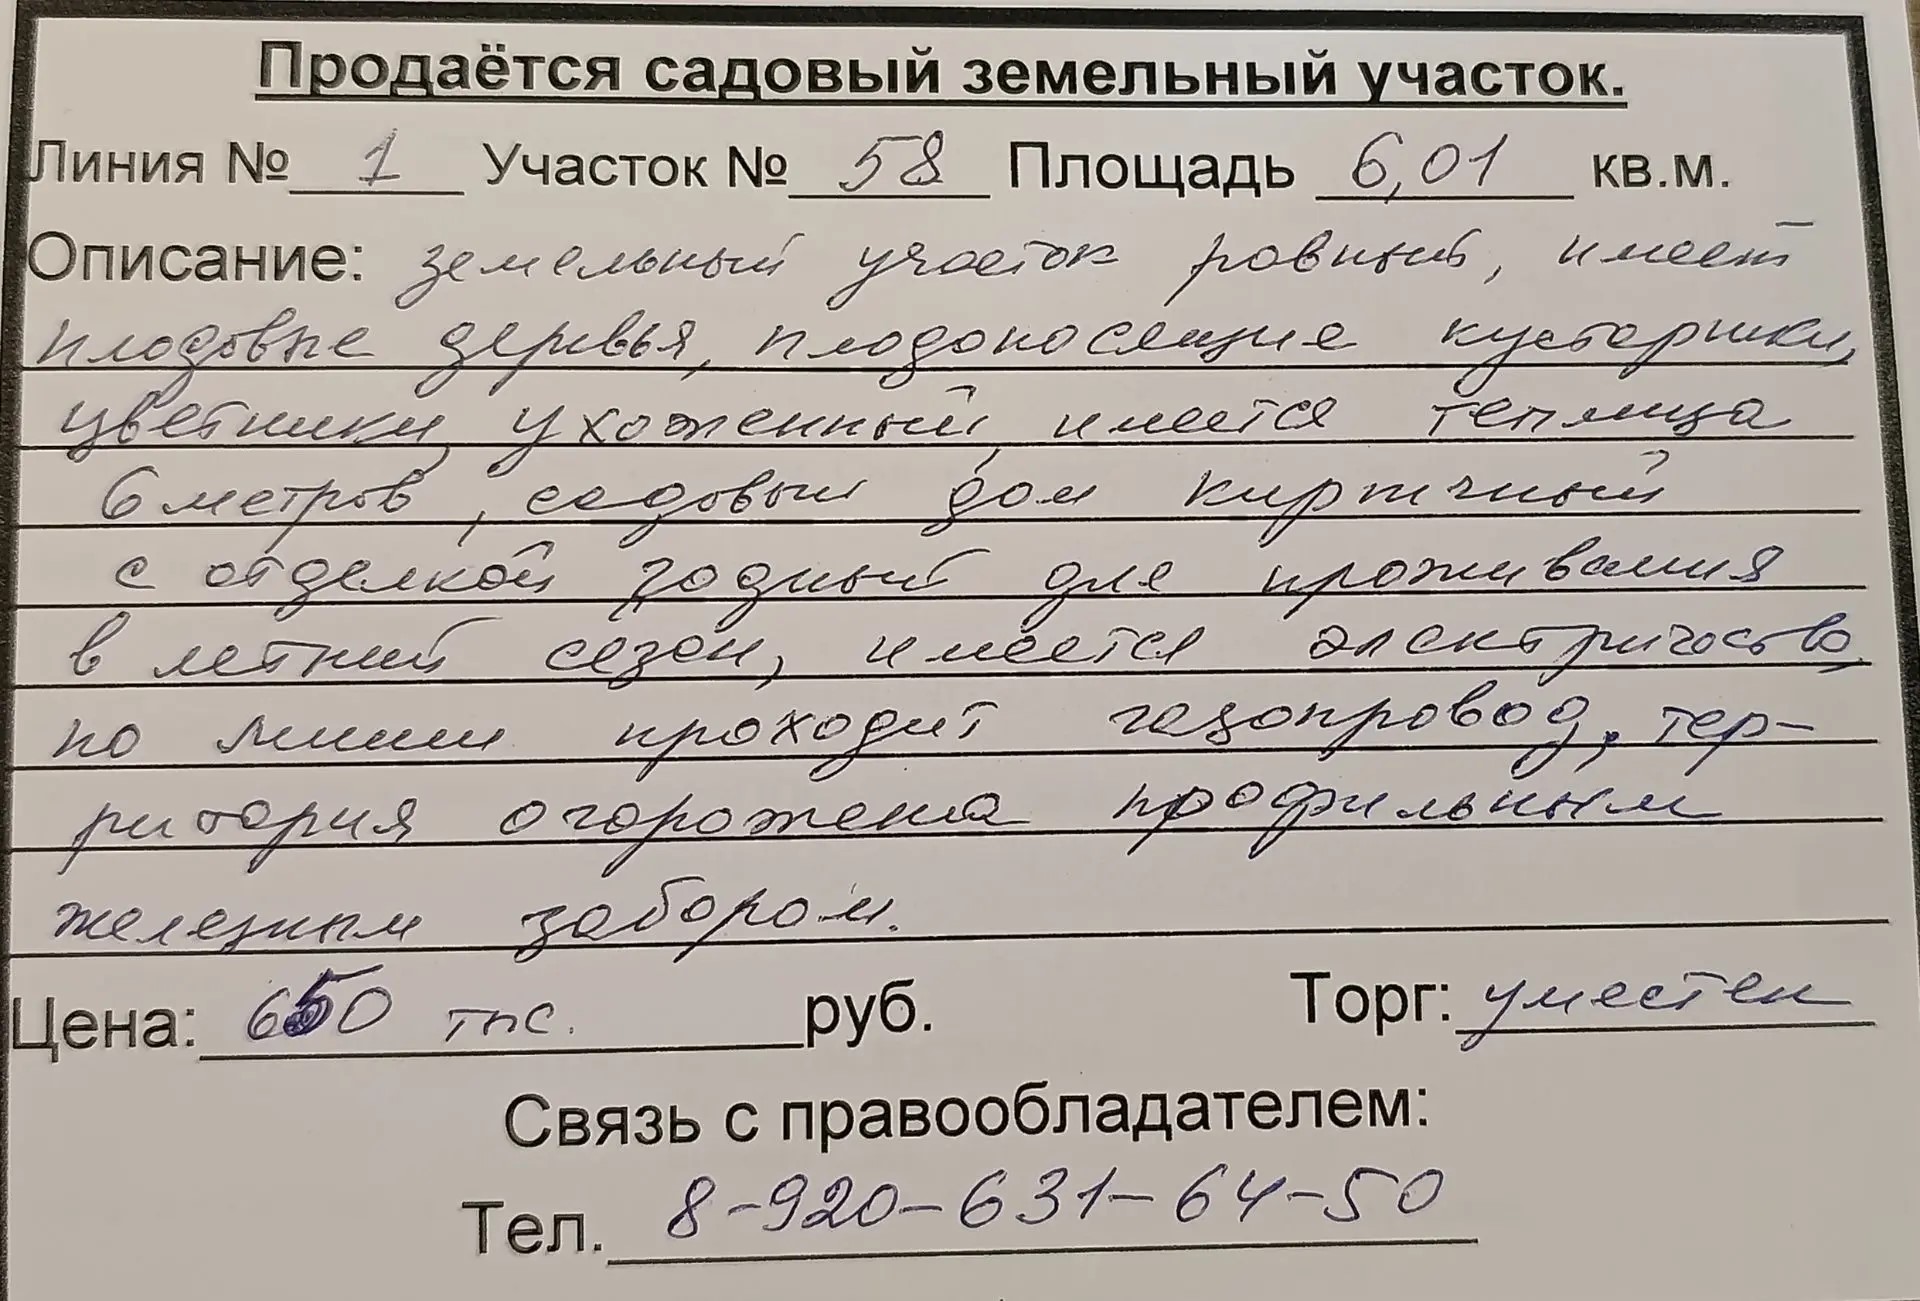 Продаётся садовый земельный участок.
Линия № 1 Участок № 58 Площадь 6,01 кв.м.
Описание: земельный участок ровный, имеет
плодовые деревья, плодоносящие кустарники,
цветники, ухоженный, имеется теплица
6 метров, садовый дом кирпичный
с отделкой годный для проживания
в летний сезон, имеется электричество,
по линии проходит газопровод, тер-
ритория огорожена профильным
железным забором.
Цена: 650 тыс. руб. Торг: уместен
Связь с правообладателем:
Тел. 8-920-631-64-50